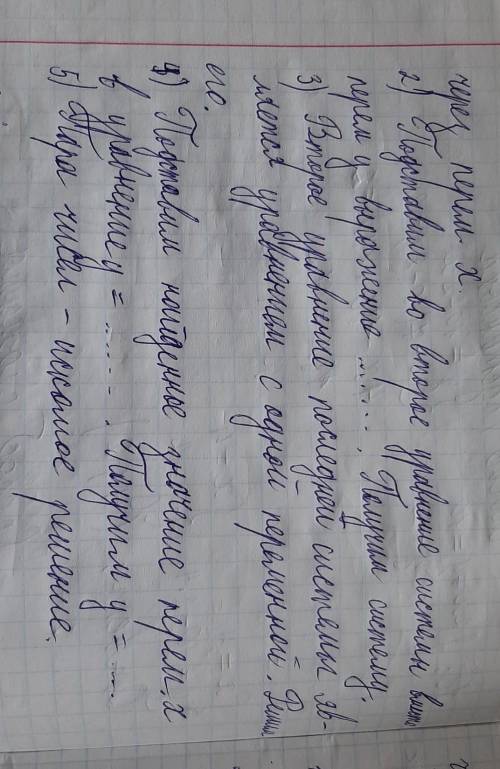 через перем x.
2) Подставим во второе уравнение системы вместо
перем y выражение ....... Получим систему.
3) Второе уравнение последней системы яв-
ляется уравнением с одной переменной. Решим
его.
4) Подставим найденное значение перем. x
в уравнение y = ....... Получим y = ....
5) Пара чисел - искомое решение.